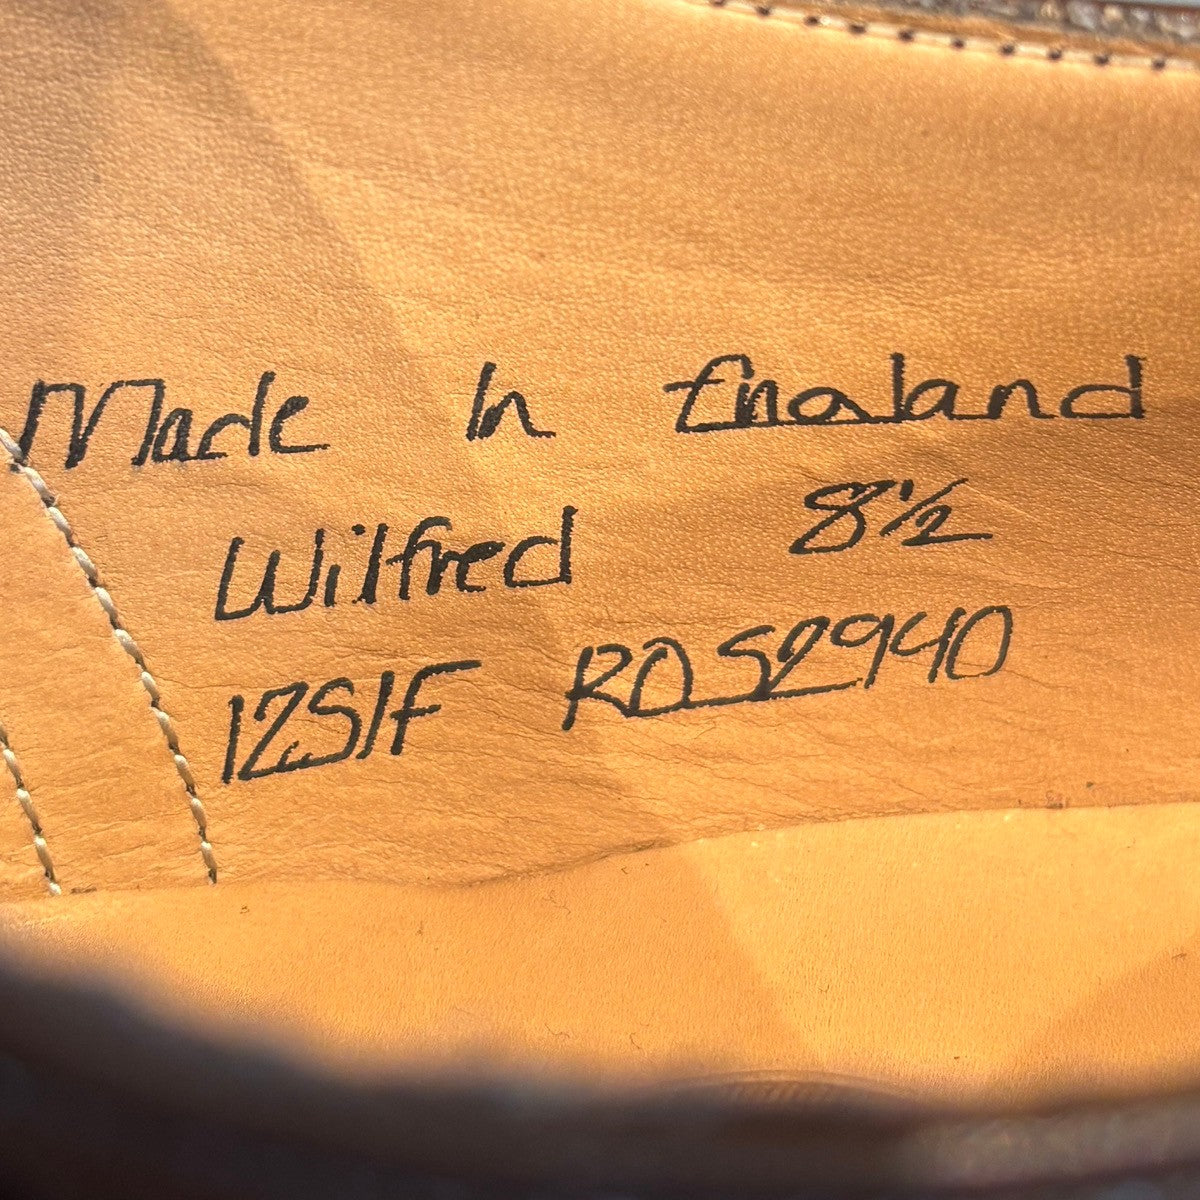 Made In England
Wilfred 8½
12S1F ROS2940